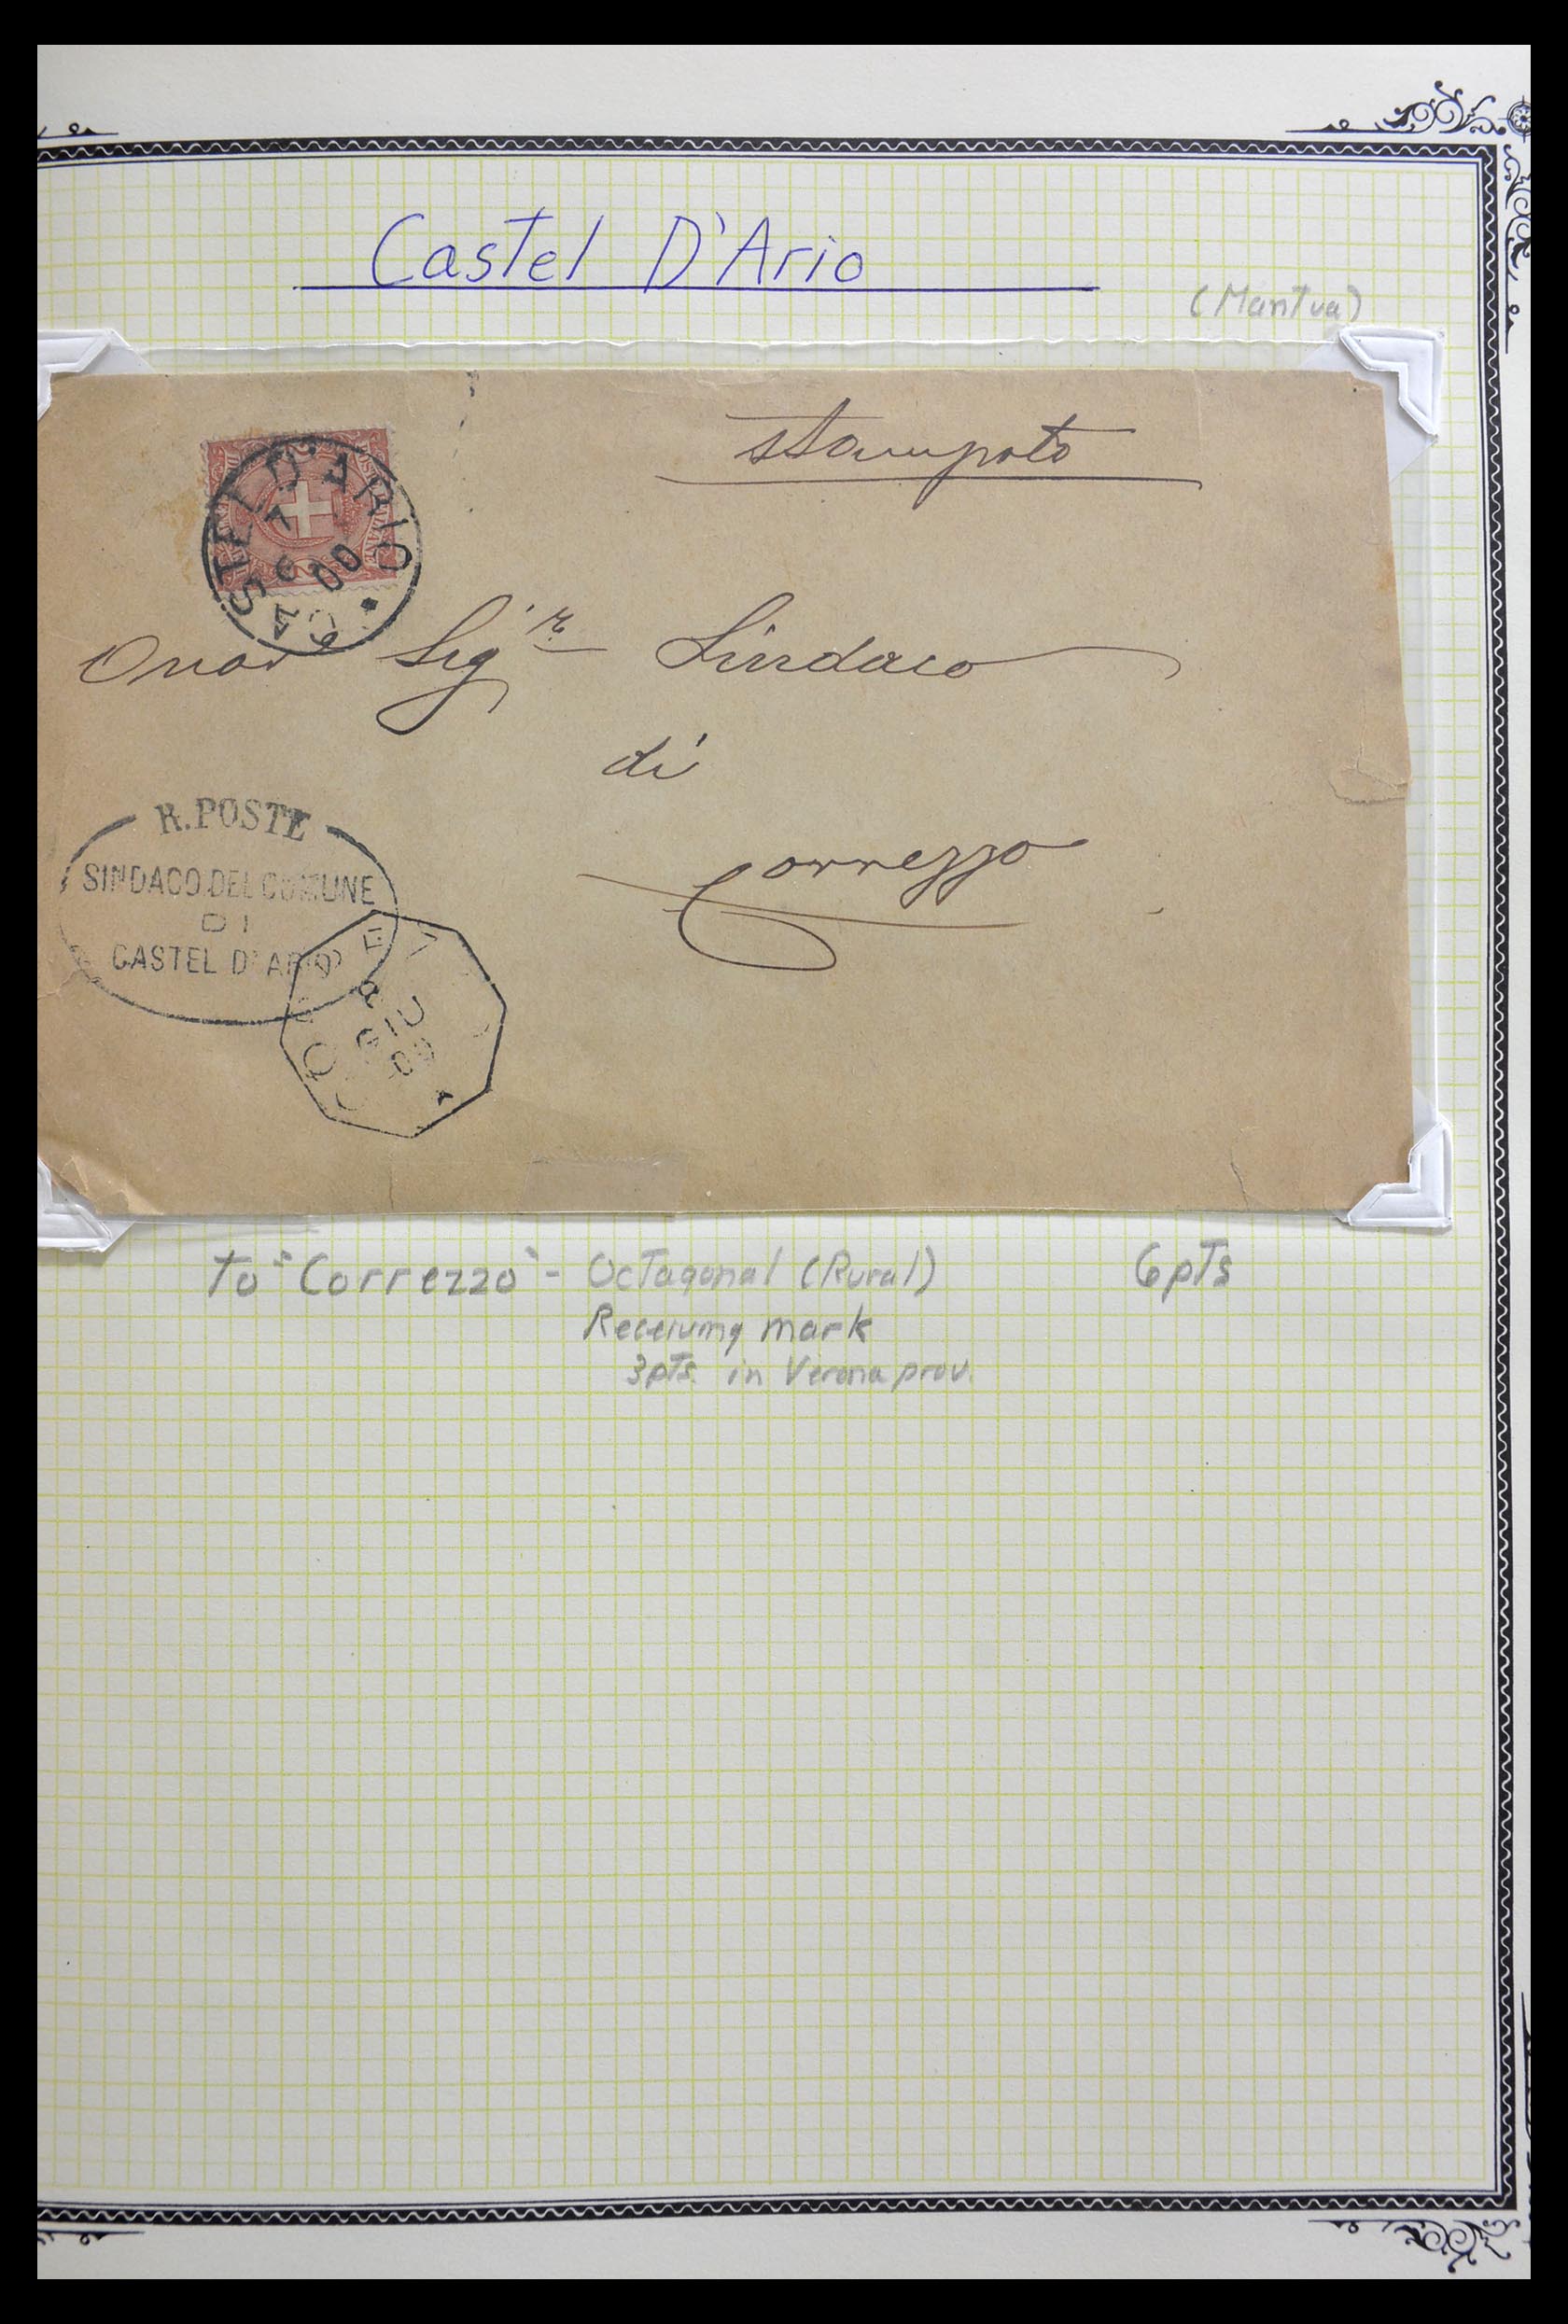 Castel D'Ario
(Mantua)
stampato
CASTEL D'ARIO
7
6
00
Onore Sigr. Sindaco
di
Correzzo
R. POSTE
SINDACO DEL COMUNE
DI
CASTEL D'ARIO
GIU
to "Correzzo" - Octagonal (Rural)
6pts
Receiving mark
3pts. in Verona prov.